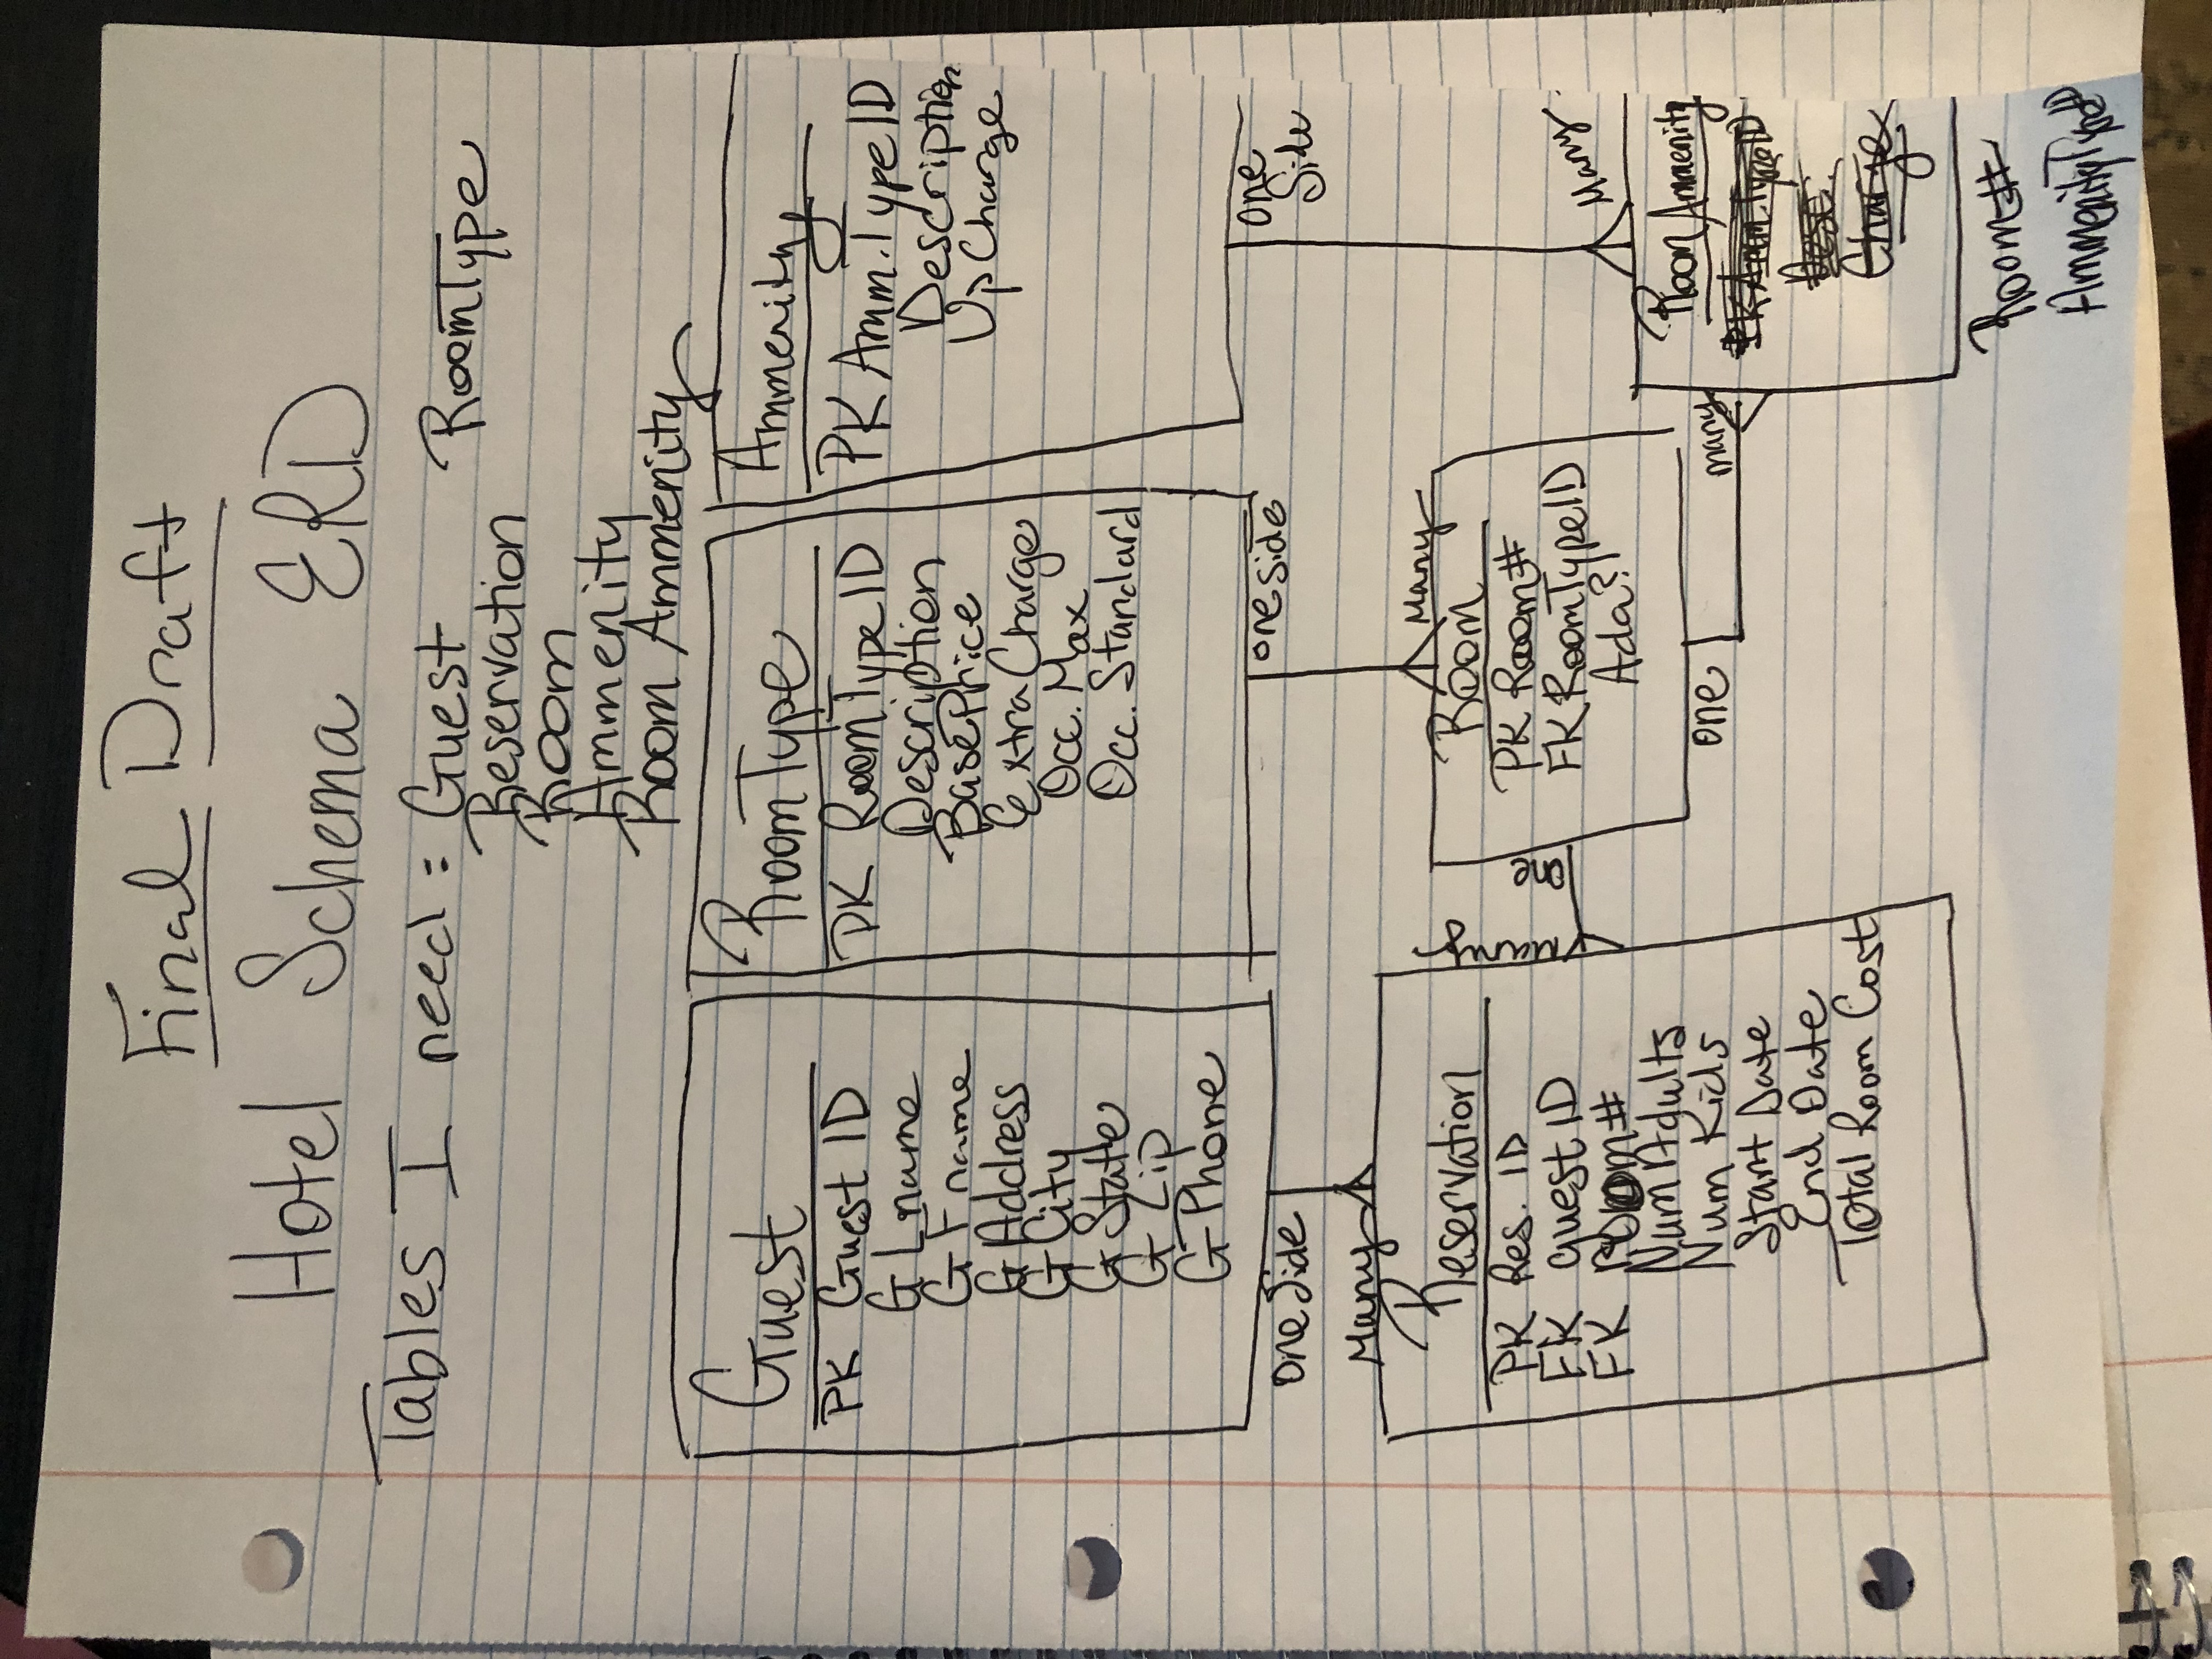 Final Draft
Hotel Schema ERD
Tables I need: Guest RoomType
Reservation
Room
Ammenity
Room Ammenity
Guest
PK Guest ID
G Lname
G Fname
G Address
G City
G State
G Zip
G Phone
one side
Many
RoomType
PK RoomTypeID
Description
BasePrice
Extra Charge
Occ. Max
Occ. Standard
one side
Many
Ammenity
PK Amm.TypeID
Description
UpCharge
one
Side
Many
Reservation
PK Res. ID
FK guest ID
FK Room#
Num Adults
Num Kids
Start Date
End Date
Total Room Cost
Many
one
Room
PK Room#
FK RoomTypeID
Ada?
one
many
Room Ammenity
PK Amm.TypeID
Desc.
Charge
Room#
AmmenityTypeID